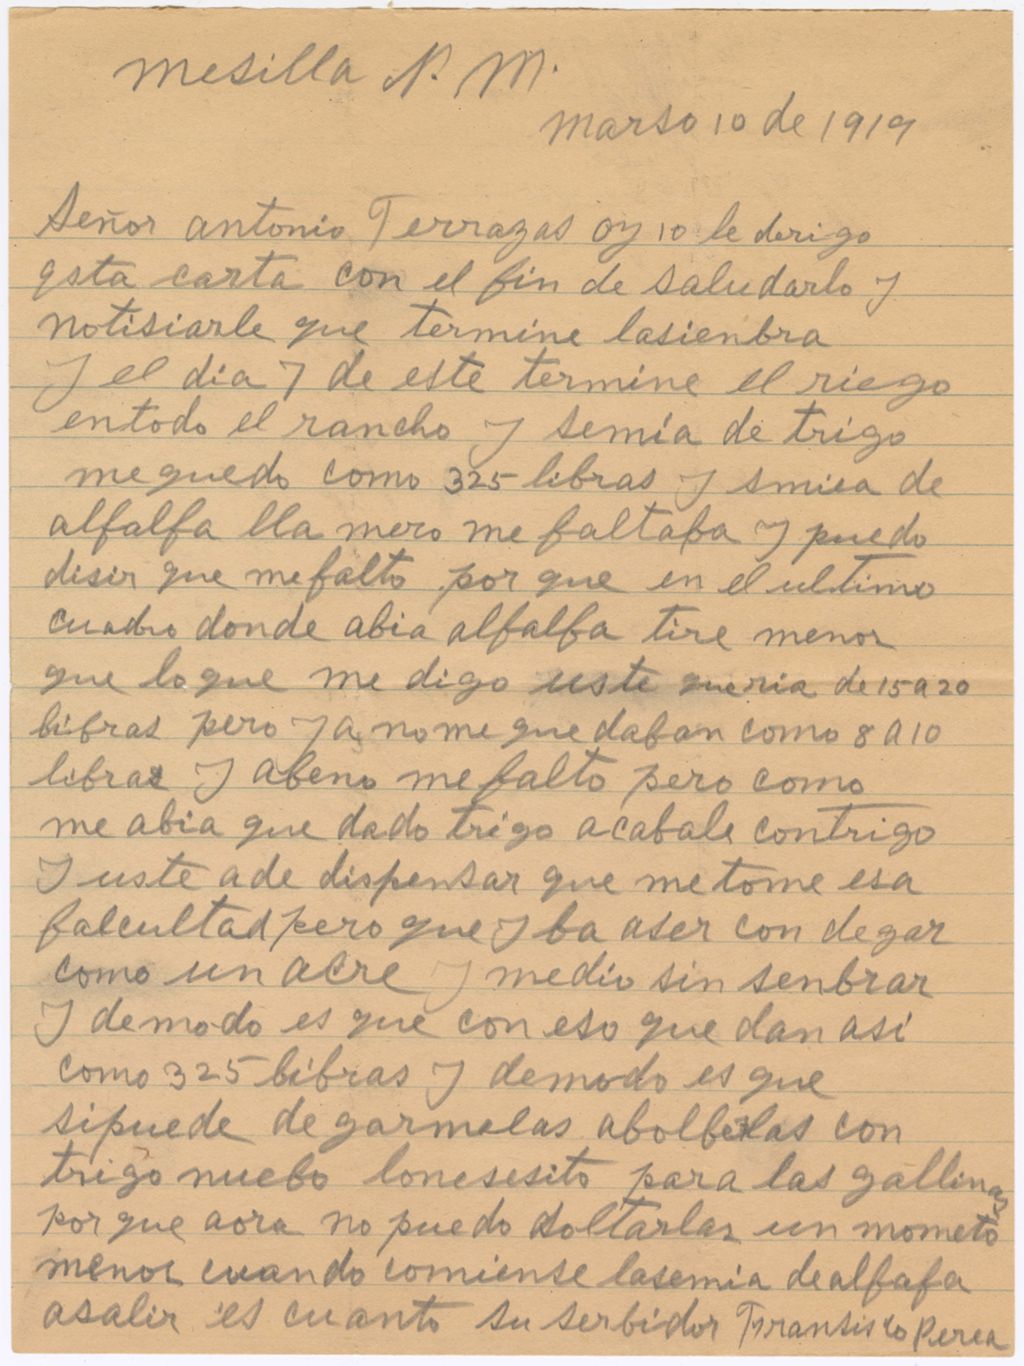 Mesilla N. M.
Marso 10 de 1919
Señor antonio Terrazas oy 10 le dirigo
esta carta con el fin de saludarlo y
notisiarle que termine lasienbra
y el dia 7 de este termine el riego
entodo el rancho y semia de trigo
mequedo como 325 libras y smiea de
alfalfa lla mero me faltaba y puedo
disir que mefalto por que en el ultimo
cuadro donde abia alfalfa tire menor
que loque me digo uste queria de 15 a 20
libras pero ya nome quedaban como 8 a 10
libras y abeno me falto pero como
me abia que dado trigo acabale contrigo
y uste ade dispensar que metome esa
falcultad pero que yba aser con degar
como un acre y medio sin senbrar
y demodo es que con eso que dan asi
como 325 libras y demodo es que
sipuede degarmelas abolberlas con
trigo nuebo lonesesito para las gallinas
por que aora no puedo soltarlas un mometo
menos cuando comiense lasemia dealfafa
asalir es cuanto su serbidor Fransisko Perea